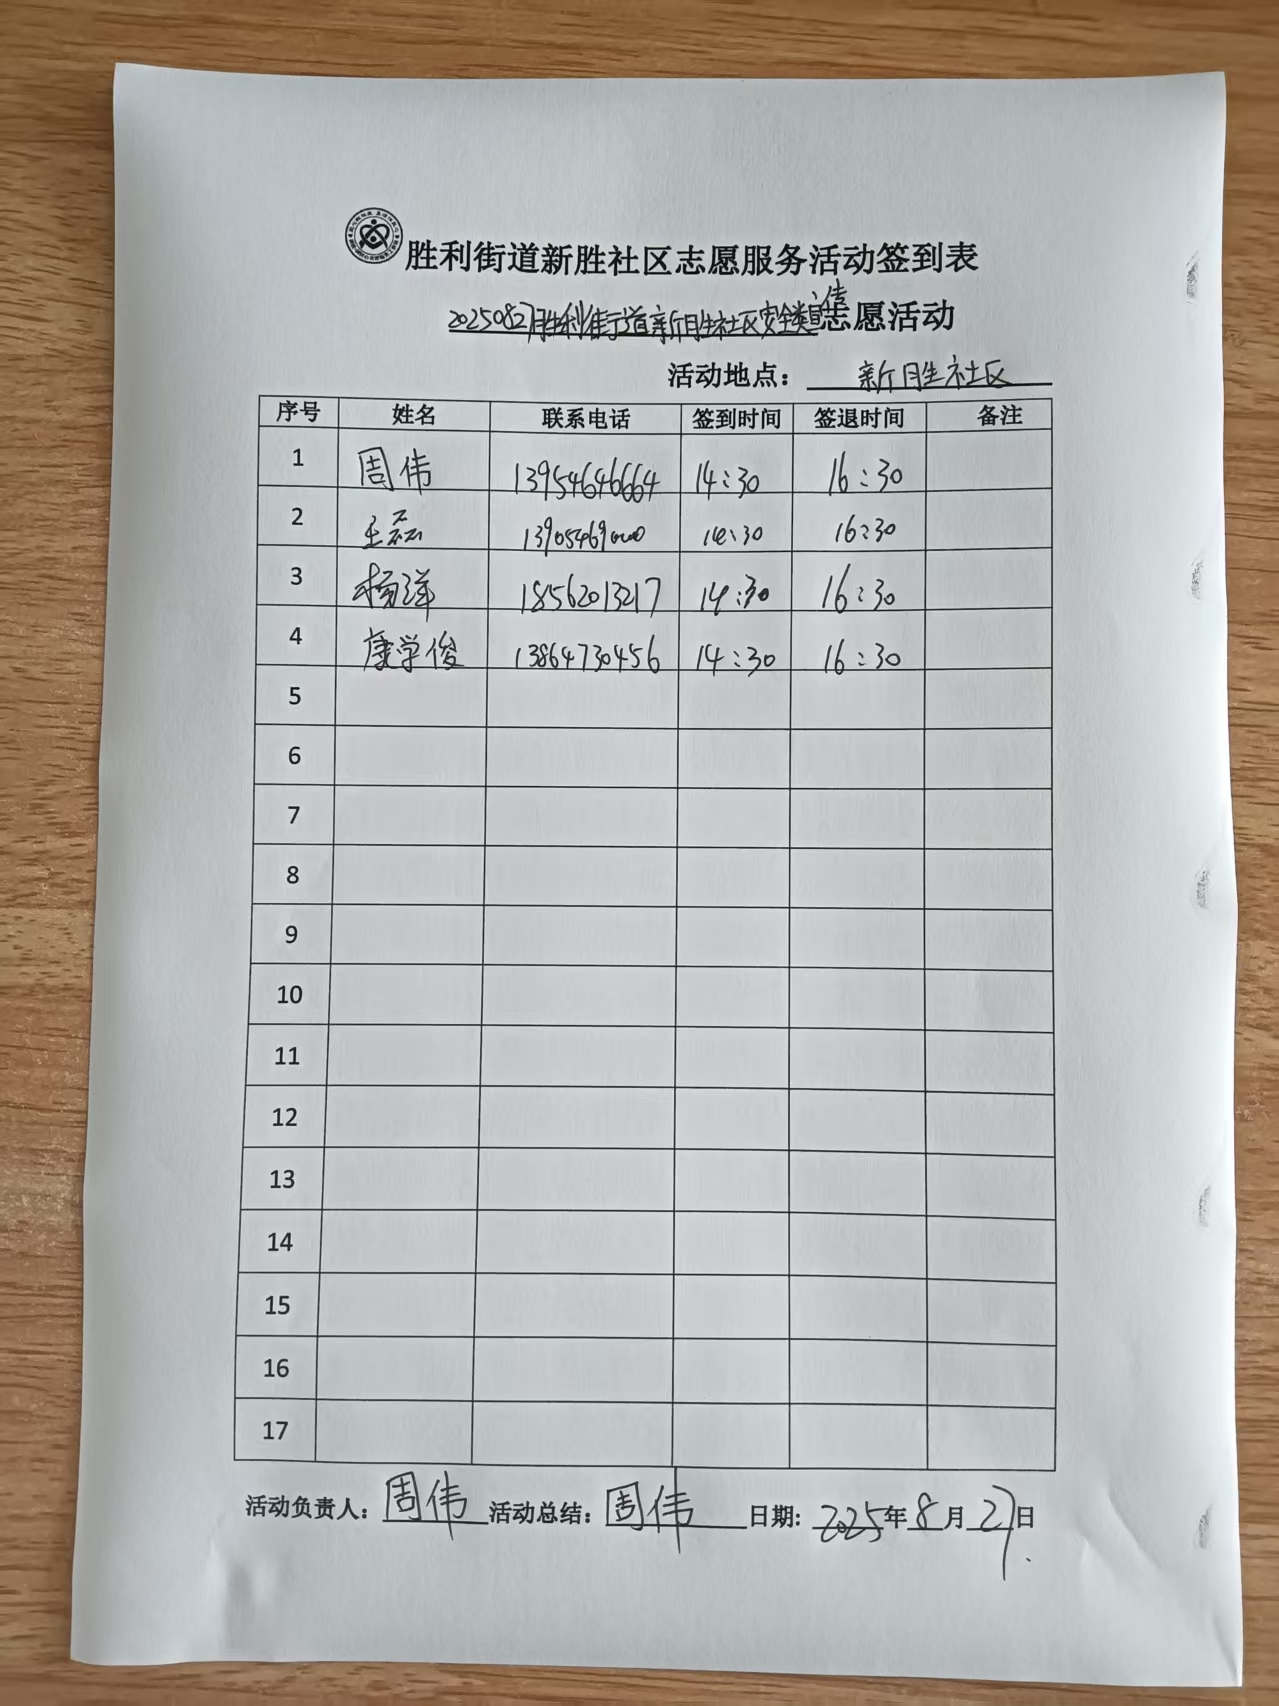 胜利街道新胜社区志愿服务活动签到表
20250827胜利街道新胜社区安全类宣传志愿活动
活动地点： 新胜社区
序号 姓名 联系电话 签到时间 签退时间 备注
1 周伟 13954646664 14:30 16:30
2 王磊 14:30 16:30
3 杨洋 18562013217 14:30 16:30
4 康学俊 13864730456 14:30 16:30
5
6
7
8
9
10
11
12
13
14
15
16
17
活动负责人：周伟 活动总结：周伟 日期：2025年8月27日